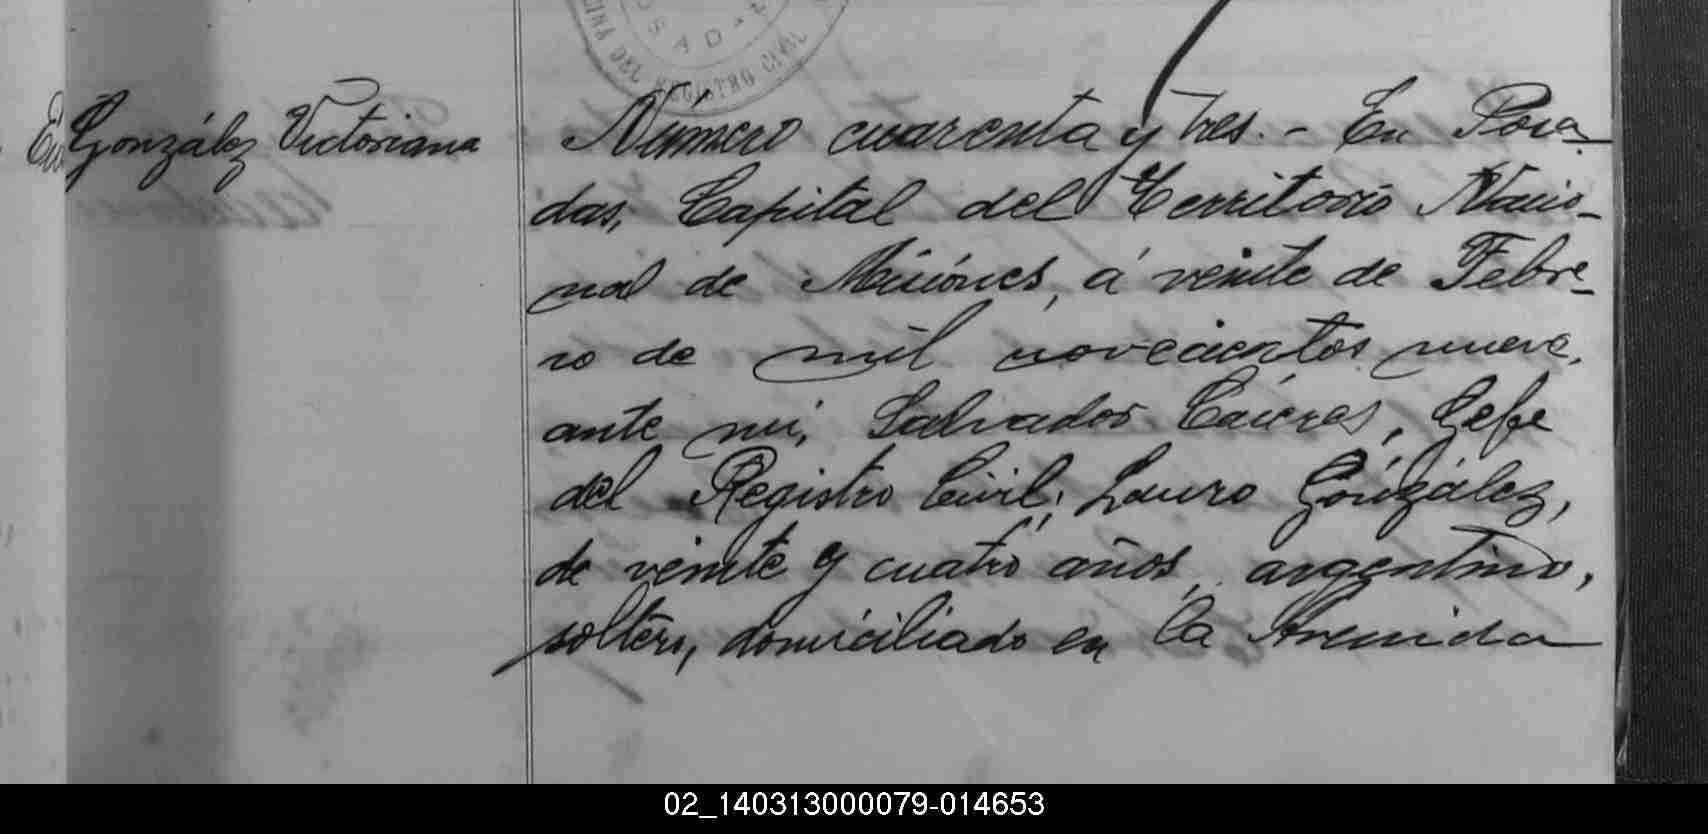 OSADA
CINA DEL REGISTRO CIVIL
González Victoriana
Número cuarenta y tres.- En Posa-
das, Capital del Territorio Nacio-
nal de Misiónes, á veinte de Febre-
ro de mil novecientos nueve,
ante mí, Salvador Cáceres, Gefe
del Registro Civil; Lauro González,
de veinte y cuatro años, argentino,
soltero, domiciliado en la Avenida
02_140313000079-014653